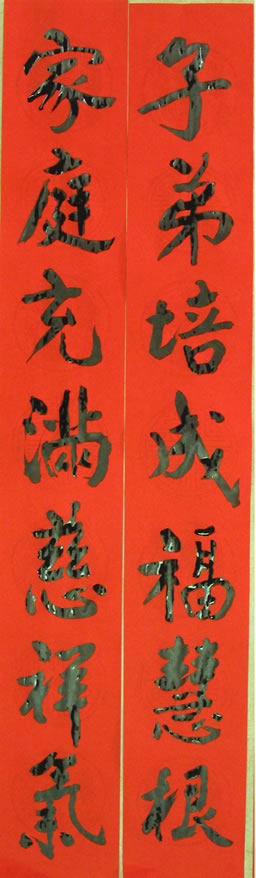 子弟培成福慧根
家庭充滿慈祥氣